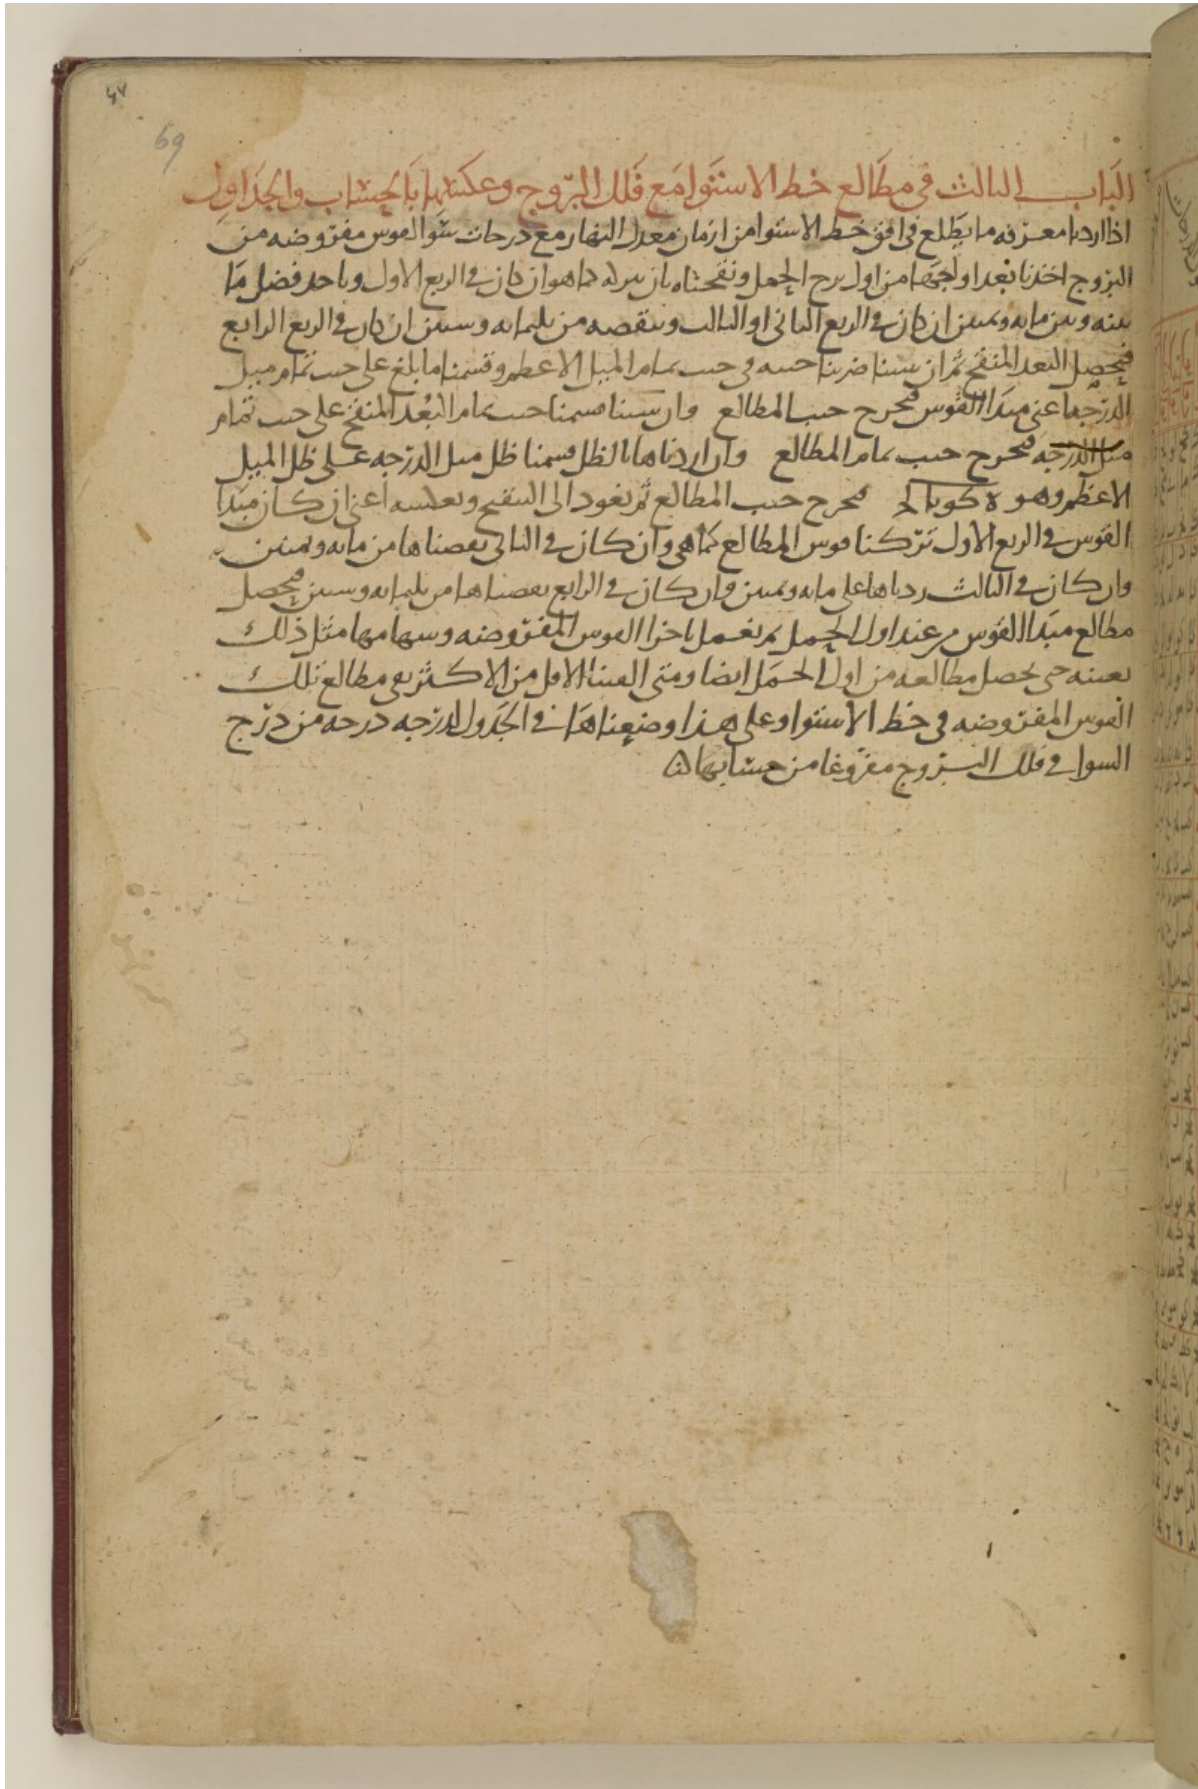 ٦٧
69
الباب الثالث في مطالع خط الاستوا مع فلك البروج وعكسها بالحساب والجداول
اذا اردنا معرفه ما يطلع في افق خط الاستوا من ازمان معدل النهار مع درجات سوا لقوس مفروضه من
البروج اخذنا بعد اولهما من اول برج الحمل ونقحناه بان نتركه كما هو ان كان في الربع الاول وناخذ فضل ما
بينه وبين مايه وثمنين ان كان في الربع الثاني او الثالث وننقصه من ثلثمايه وستين ان كان في الربع الرابع
فيحصل البعد المنقح ثم ان شينا ضربنا جيبه في جيب تمام الميل الاعظم وقسمنا ما بلغ على جيب تمام ميل
الدرجه اعني مبدا القوس فيخرج جيب المطالع وان شينا قسمنا جيب تمام البعد المنقح على جيب تمام
ميل الدرجه فيخرج جيب تمام المطالع وان اردناها بالظل قسمنا ظل ميل الدرجه على ظل الميل
الاعظم وهو فيخرج جيب المطالع ثم نعود الى التنقيح ونعكسه اعني ان كان مبدا
القوس في الربع الاول تركنا قوس المطالع كما هي وان كان في الثاني نقصناها من مايه وثمنين
وان كان في الثالث زدناها على مايه وثمنين وان كان في الرابع نقصناها من ثلثمايه وستين فيحصل
مطالع مبدا القوس من عند اول الحمل ثم نعمل باخر القوس المفروضه وسهامها مثل ذلك
بعينه حتى يحصل مطالعه من اول الحمل ايضا ومتى القينا الاقل من الاكثر بقي مطالع تلك
القوس المفروضه في خط الاستوا وعلى هذا وضعناها في الجدول لدرجه درجه من درج
السوا في فلك البروج مفروغا من حسابها